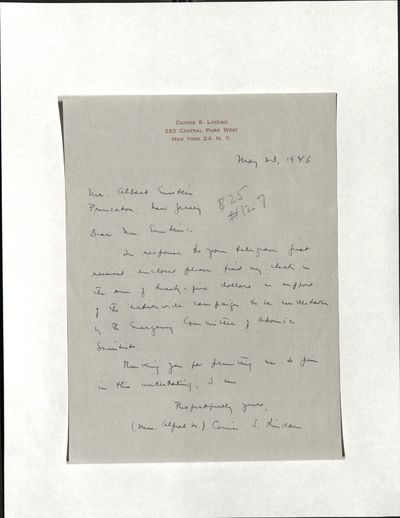 Connie S. Lindau
262 Central Park West
New York 24, N. Y.
May 23, 1946
Mr. Albert Einstein
Princeton, New Jersey
$25
#127
Dear Mr. Einstein:-
In response to your telegram just
received enclosed please find my check in
the sum of twenty-five dollars in support
of the nationwide campaign to be undertaken
by the Emergency Committee of Atomic
Scientists.
Thanking you for permitting me to join
in this undertaking, I am
Respectfully yours,
(Mrs. Alfred M) Connie S. Lindau